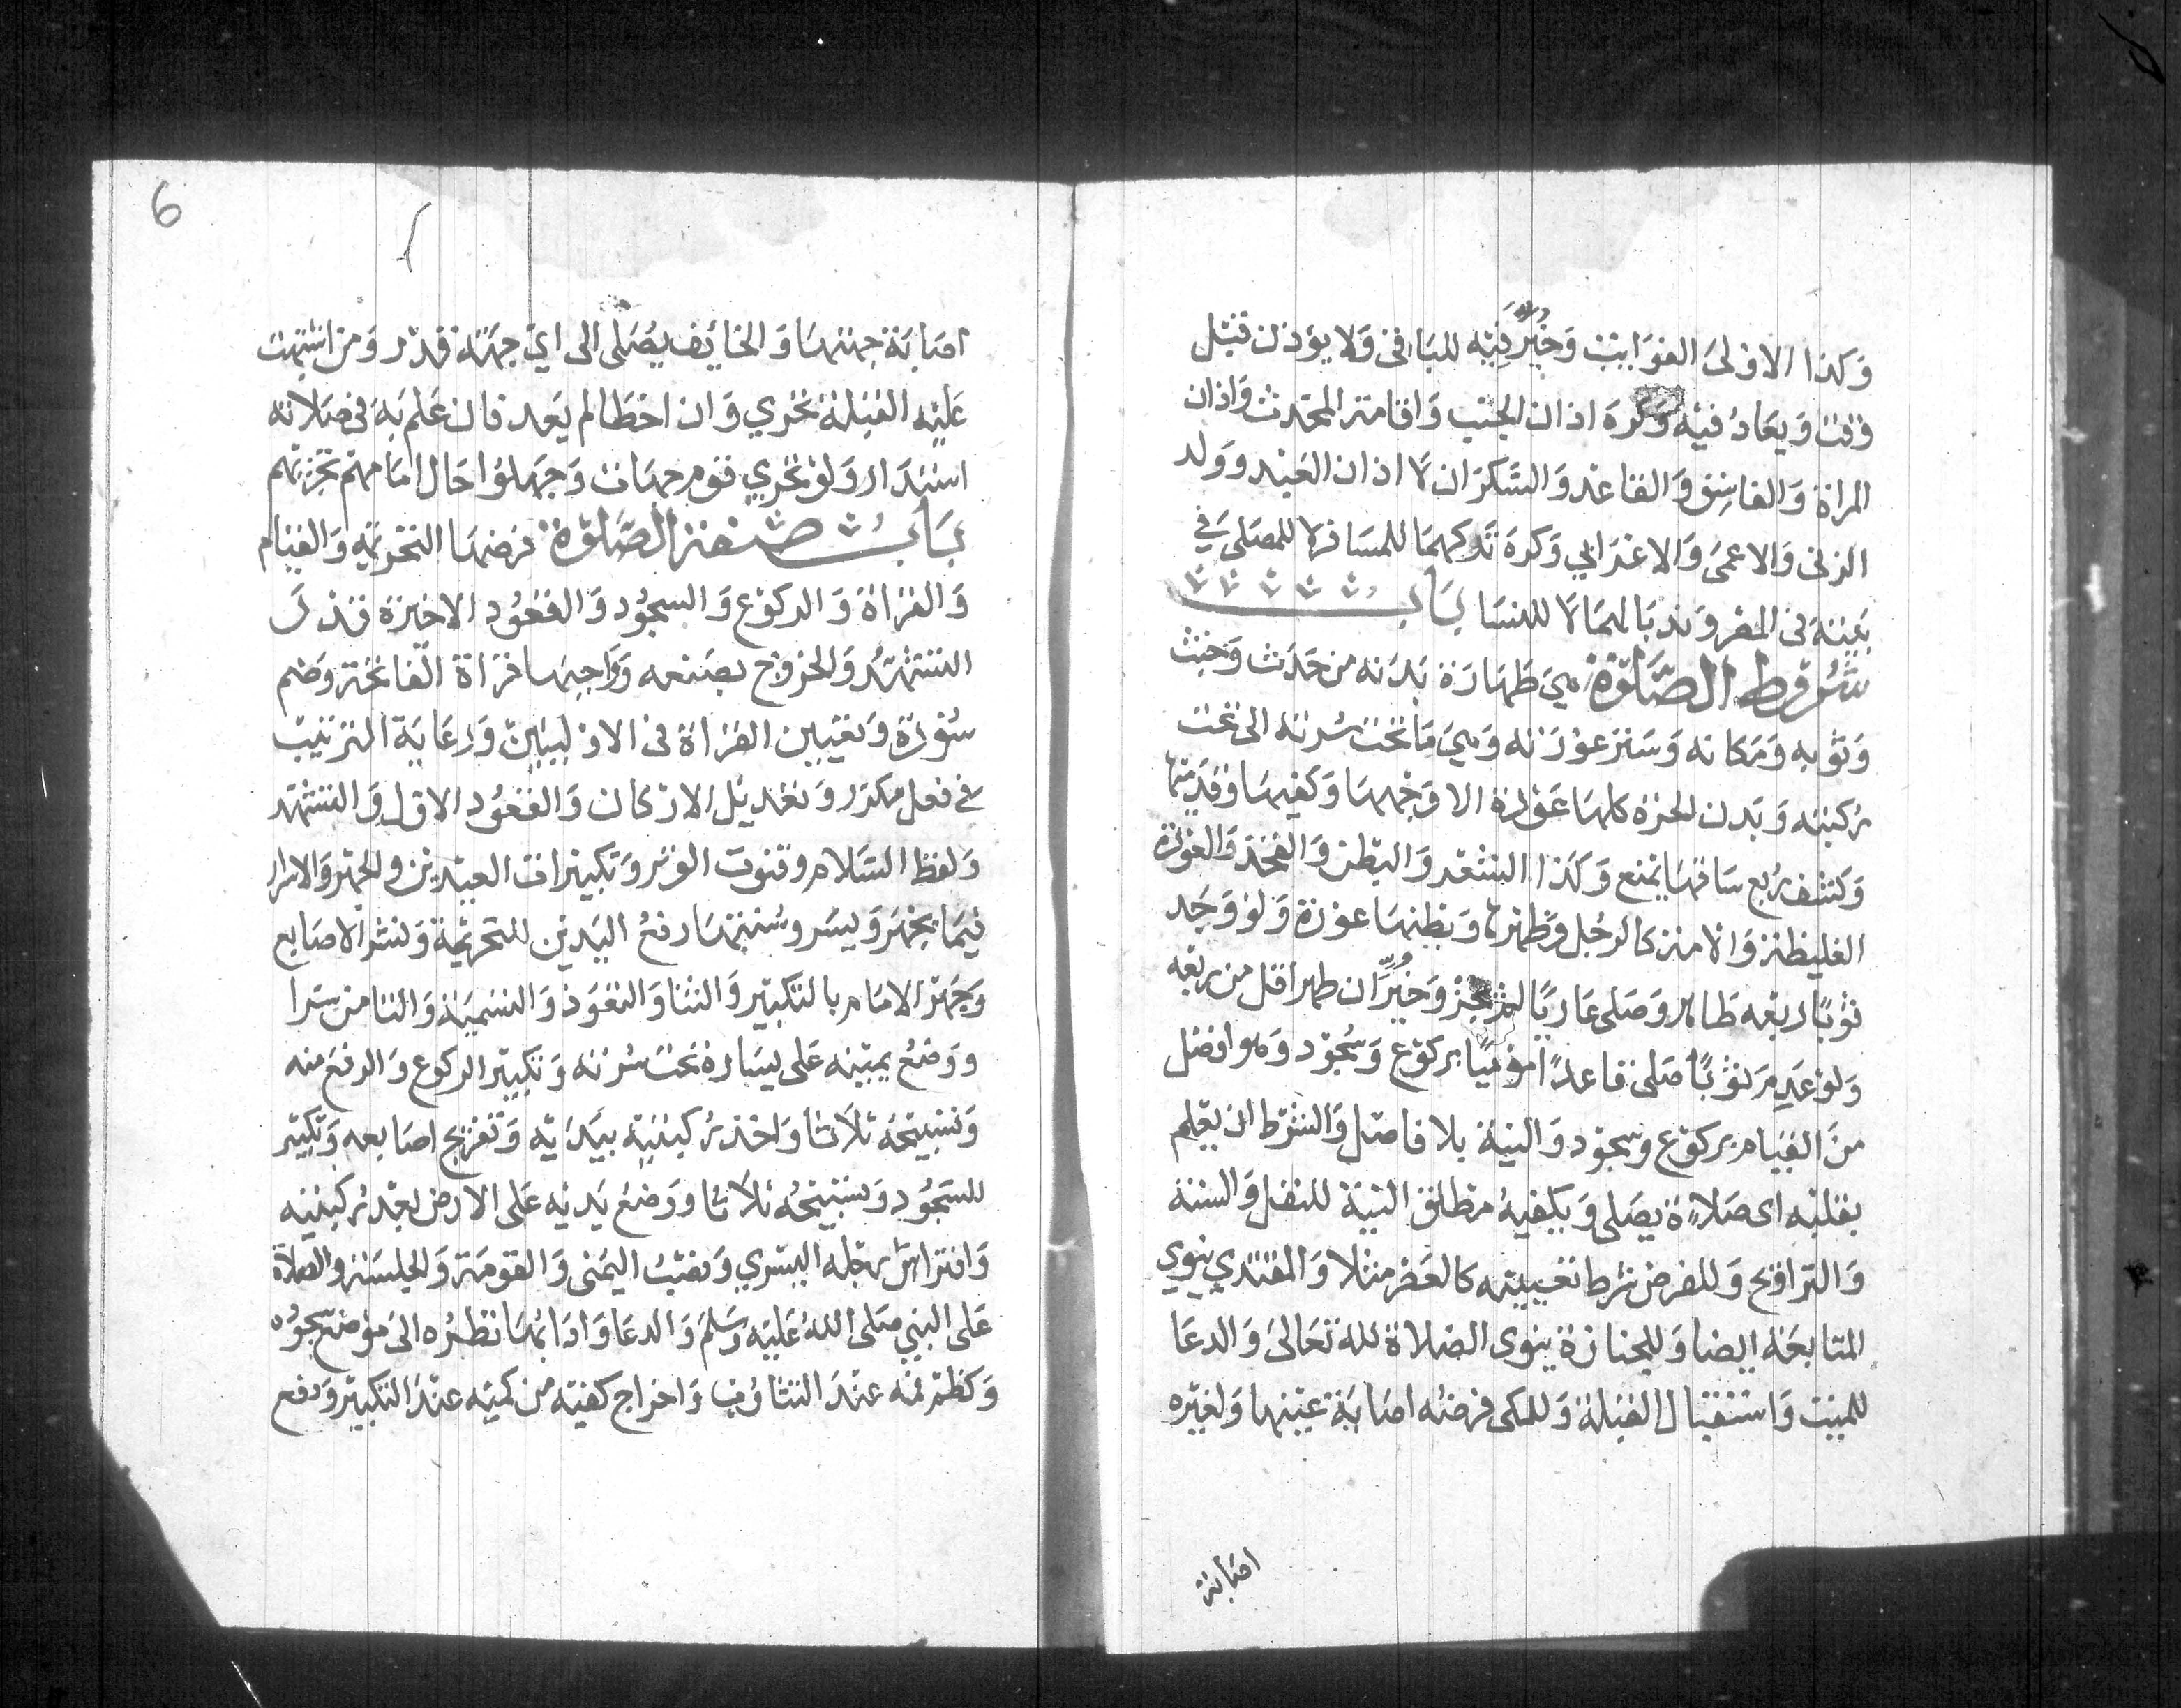 وكذا الاولى الفوايت وخير فيه للباقى ولا يؤذن قبل
وقت ويعاد فيه وكره اذان الجنب واقامته المحدث واذان
المراة والفاسق والقاعد والسكران لا اذان العبد وولد
الزنى والاعمى والاعرابي وكره تركهما للمسافر لا للمصلى في
بيته فى المصر وندبا لهما لا للنسا باب
شروط الصلوة هي طهارة بدنه من حدث وخبث
وثوبه ومكانه وستر عورته وهي ما تحت سرته الى تحت
ركبته وبدن الحرة كلها عورة الا وجهها وكفيها وقدميها
وكشف ربع ساقها يمنع وكذا الشعر والبطن والفخذ والعورة
الغليظة والامة كالرجل وظهرها وبطنها عورة ولو وجد
ثوبا ربعه طاهر وصلى عاريا لم يجز وخير ان طهر اقل من ربعه
ولو عدم ثوبا صلى قاعدا موميا بركوع وسجود وهو افضل
من القيام بركوع وسجود والنية بلا فاصل والشرط ان يعلم
بقلبه اى صلاة يصلى ويكفيه مطلق النية للنفل والسنة
والتراويح وللفرض شرط تعيينه كالعصر مثلا والمقتدي ينوي
المتابعة ايضا وللجنازة ينوى الصلاة لله تعالى والدعا
للميت واستقبال القبلة وللمكى فرضه اصابة عينها ولغيره
اصابة
6
اصابة جهتها والخايف يصلى الى اي جهة قدر ومن اشتبهت
عليه القبلة تحري وان اخطا لم يعد فان علم به فى صلاته
استدار ولو تحري قوم جهات وجهلوا حال امامهم تجزيهم
باب صفة الصلوة فرضها التحريمة والقيام
والقراة والركوع والسجود والقعود الاخيرة قدر
التشهد والخروج بصنعه وواجبها قراة الفاتحة وضم
سورة وتعيين القراة فى الاوليين ورعاية الترتيب
في فعل مكرر وتعديل الاركان والقعود الاول والتشهد
ولفظ السلام وقنوت الوتر وتكبيرات العيدين والجهر والاسرار
فيما يجهر ويسر وسننها رفع اليدين للتحريمة ونشر الاصابع
وجهر الامام بالتكبير والثنا والتعوذ والتسمية والتامين سرا
ووضع يمينه على يساره تحت سرته وتكبير الركوع والرفع منه
وتسبيحه ثلاثا واخذ ركبتيه بيديه وتفريج اصابعه وتكبير
للسجود وتسبيحه ثلاثا ووضع يديه على الارض بعد ركبتيه
وافتراش رجله اليسري ونصب اليمنى والقومة والجلسة والصلاة
على النبي صلى الله عليه وسلم والدعا وادابها نظره الى موضع سجوده
وكظم فمه عند التثاوب واخراج كفيه من كميه عند التكبير ودفع